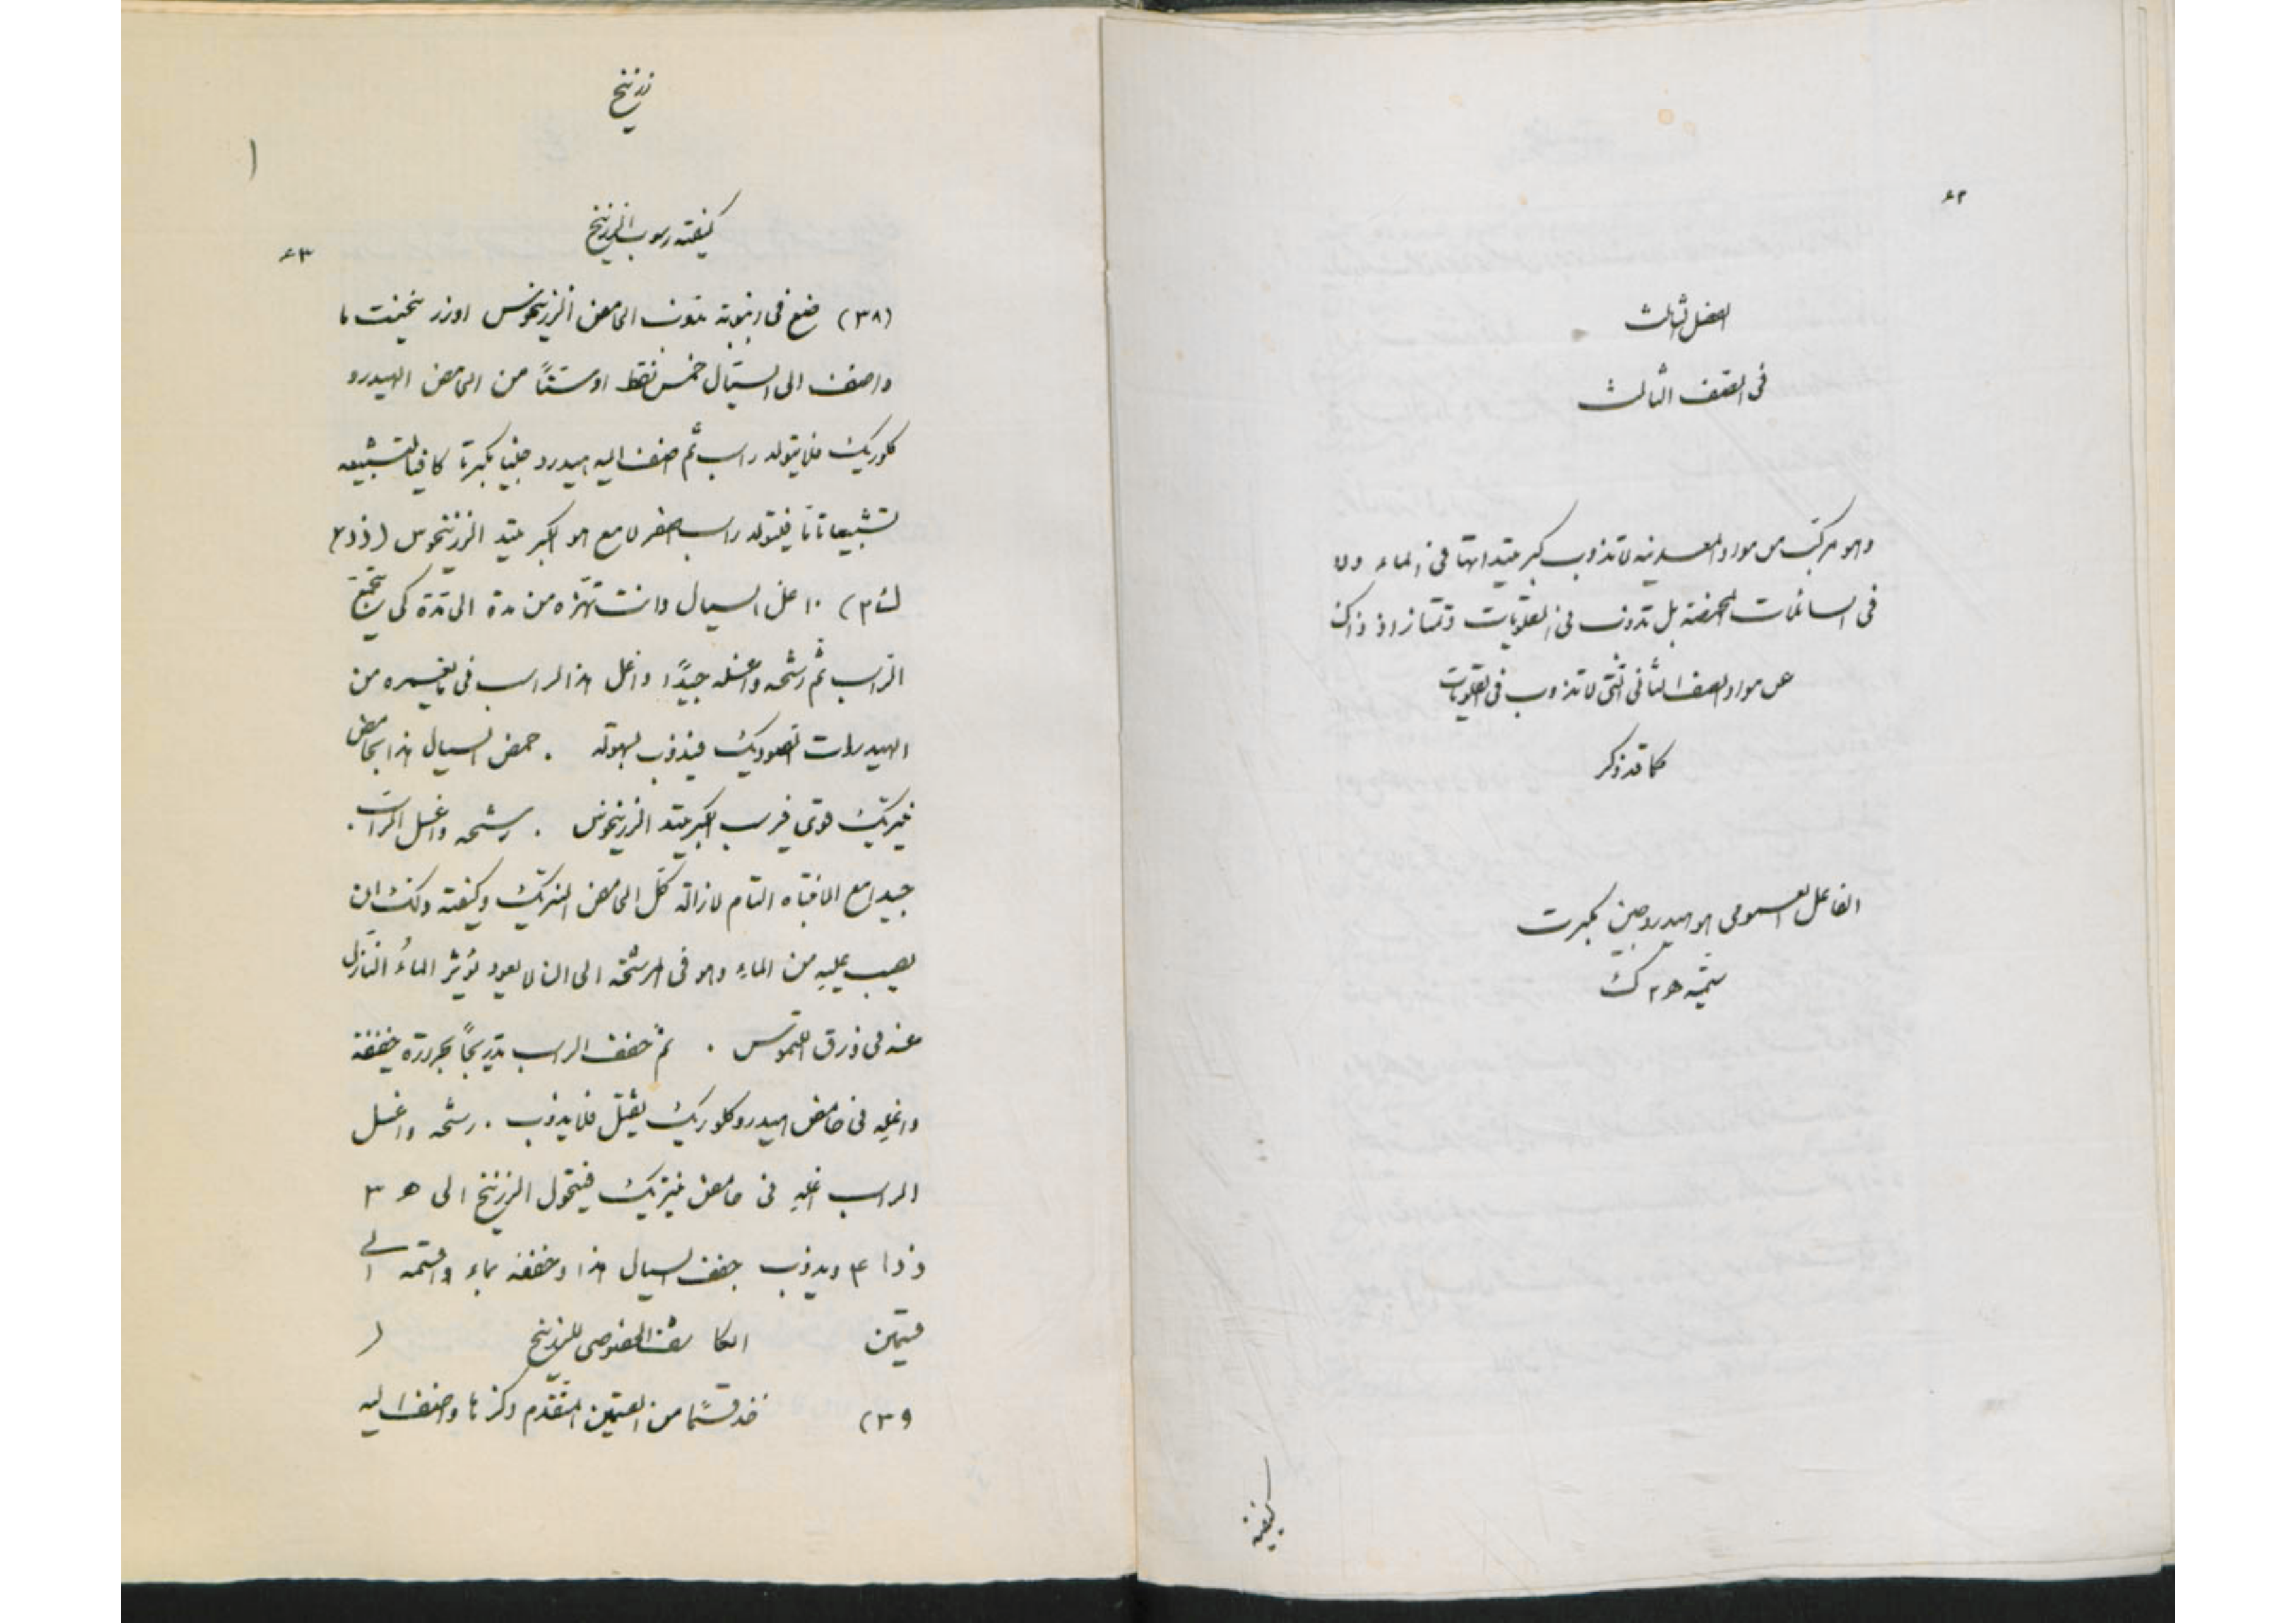 ٤٢
الفصل الثالث
فى الصنف الثالث
وهو مركب من مواد المعدنيه لا تذوب كبريتيداتها فى الماء ولا
فى السائلات المحمضة بل تذوب فى القلويات وتمتاز اذ ذاك
عن مواد الصنف الثانى التى لا تذوب فى القلويات
كما قد ذكر
الفاعل العمومى هو هيدروجين مكبرت
ستميه ه٢ ك
كيفية
زرنيخ
كيفية رسوب الزرنيخ
٤٣
(٣٨) ضع فى انبوبة تذوب الحامض الزرنيخوس او زرنيخيت ما
واضف الى السيال خمس نقط او ستّاً من الحامض الهيدرو
كلوريك فلا يتولد راسب ثم اضف اليه هيدروجينا مكبرتا كافيا لتشبيعه
تشبيعا تاما فيتولد راسب اصفر لامع هو الكبريتيد الزرنيخوس (ذ ٢
ك ٣) ١٠ اغل السيال وانت تهزه من مدة الى مدة كى يتجمع
الراسب ثم رشحه واغسله جيداً واغل هذا الراسب فى ما يغمره من
الهيدرات الصوديك فيذوب بسهولة . حمض السيال هذا بحامض
نيتريك قوى فيرسب الكبريتيد الزرنيخوس . رشحه واغسل الراسب .
جيدا مع الانتباه التام لازالة كل الحامض النتريك وكيفية ذلك ان
يصب عليه من الماء وهو فى المرشحة الى ان لا يعود يؤثر الماءُ النازل
عنه فى ورق اللتموس . ثم جفف الراسب تدريجاً بحرارة خفيفة
واغله فى حامض هيدروكلوريك ثقيل فلا يذوب . رشحه واغسل
الراسب اغله فى حامض نيتريك فيتحول الزرنيخ الى ه ٣
ذ ا ٤ ويذوب جفف السيال هذا وخففه بماء واقسمه الى
قسمين الكاشف الخصوصى للزرنيخ
(٣٩ خذ قسما من القسمين المتقدم ذكرها واضف اليه